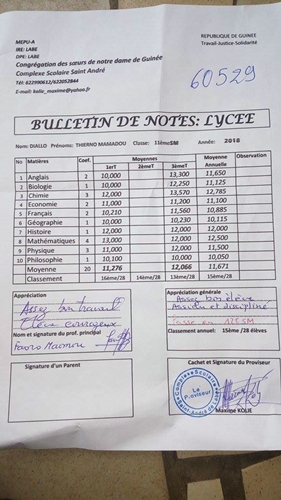 MEPU-A
IRE: LABE
DPE: LABE
Congrégation des sœurs de notre dame de Guinée
Complexe Scolaire Saint André
Tél: 622990612/622052844
E-mail: kolie_maxime@yahoo.fr
REPUBLIQUE DE GUINÉE
Travail-Justice-Solidarité
60529
BULLETIN DE NOTES: LYCEE
Nom: DIALLO Prénoms: THIERNO MAMADOU Classe: 11èmeSM Année: 2018
No Matières Coef. Moyennes Moyenne Annuelle Observation
1erT 2èmeT 3èmeT
1 Anglais 2 10,000 13,300 11,650
2 Biologie 1 10,000 12,250 11,125
3 Chimie 3 12,000 13,570 12,785
4 Economie 2 11,000 11,200 11,100
5 Français 2 10,210 11,560 10,885
6 Géographie 1 10,000 10,230 10,115
7 Histoire 1 12,000 12,000 12,000
8 Mathématiques 4 13,000 12,000 12,500
9 Physique 3 11,000 12,000 11,500
10 Philosophie 1 10,100 10,000 10,050
Moyenne 20 11,276 12,066 11,671
Classement 16ème/28 14ème/28 13ème/28 15ème/28
Appréciation
Assez bon travail
Elève courageux
Nom et signature du prof. principal
Appréciation générale
Assez bon élève
Assidu et discipliné
Passe en 12è SM
Classement annuel: 15ème /28 élèves
Signature d'un Parent
Cachet et Signature du Proviseur
Complexe Scolaire
Saint-André
Le Proviseur
Maxime KOLIE